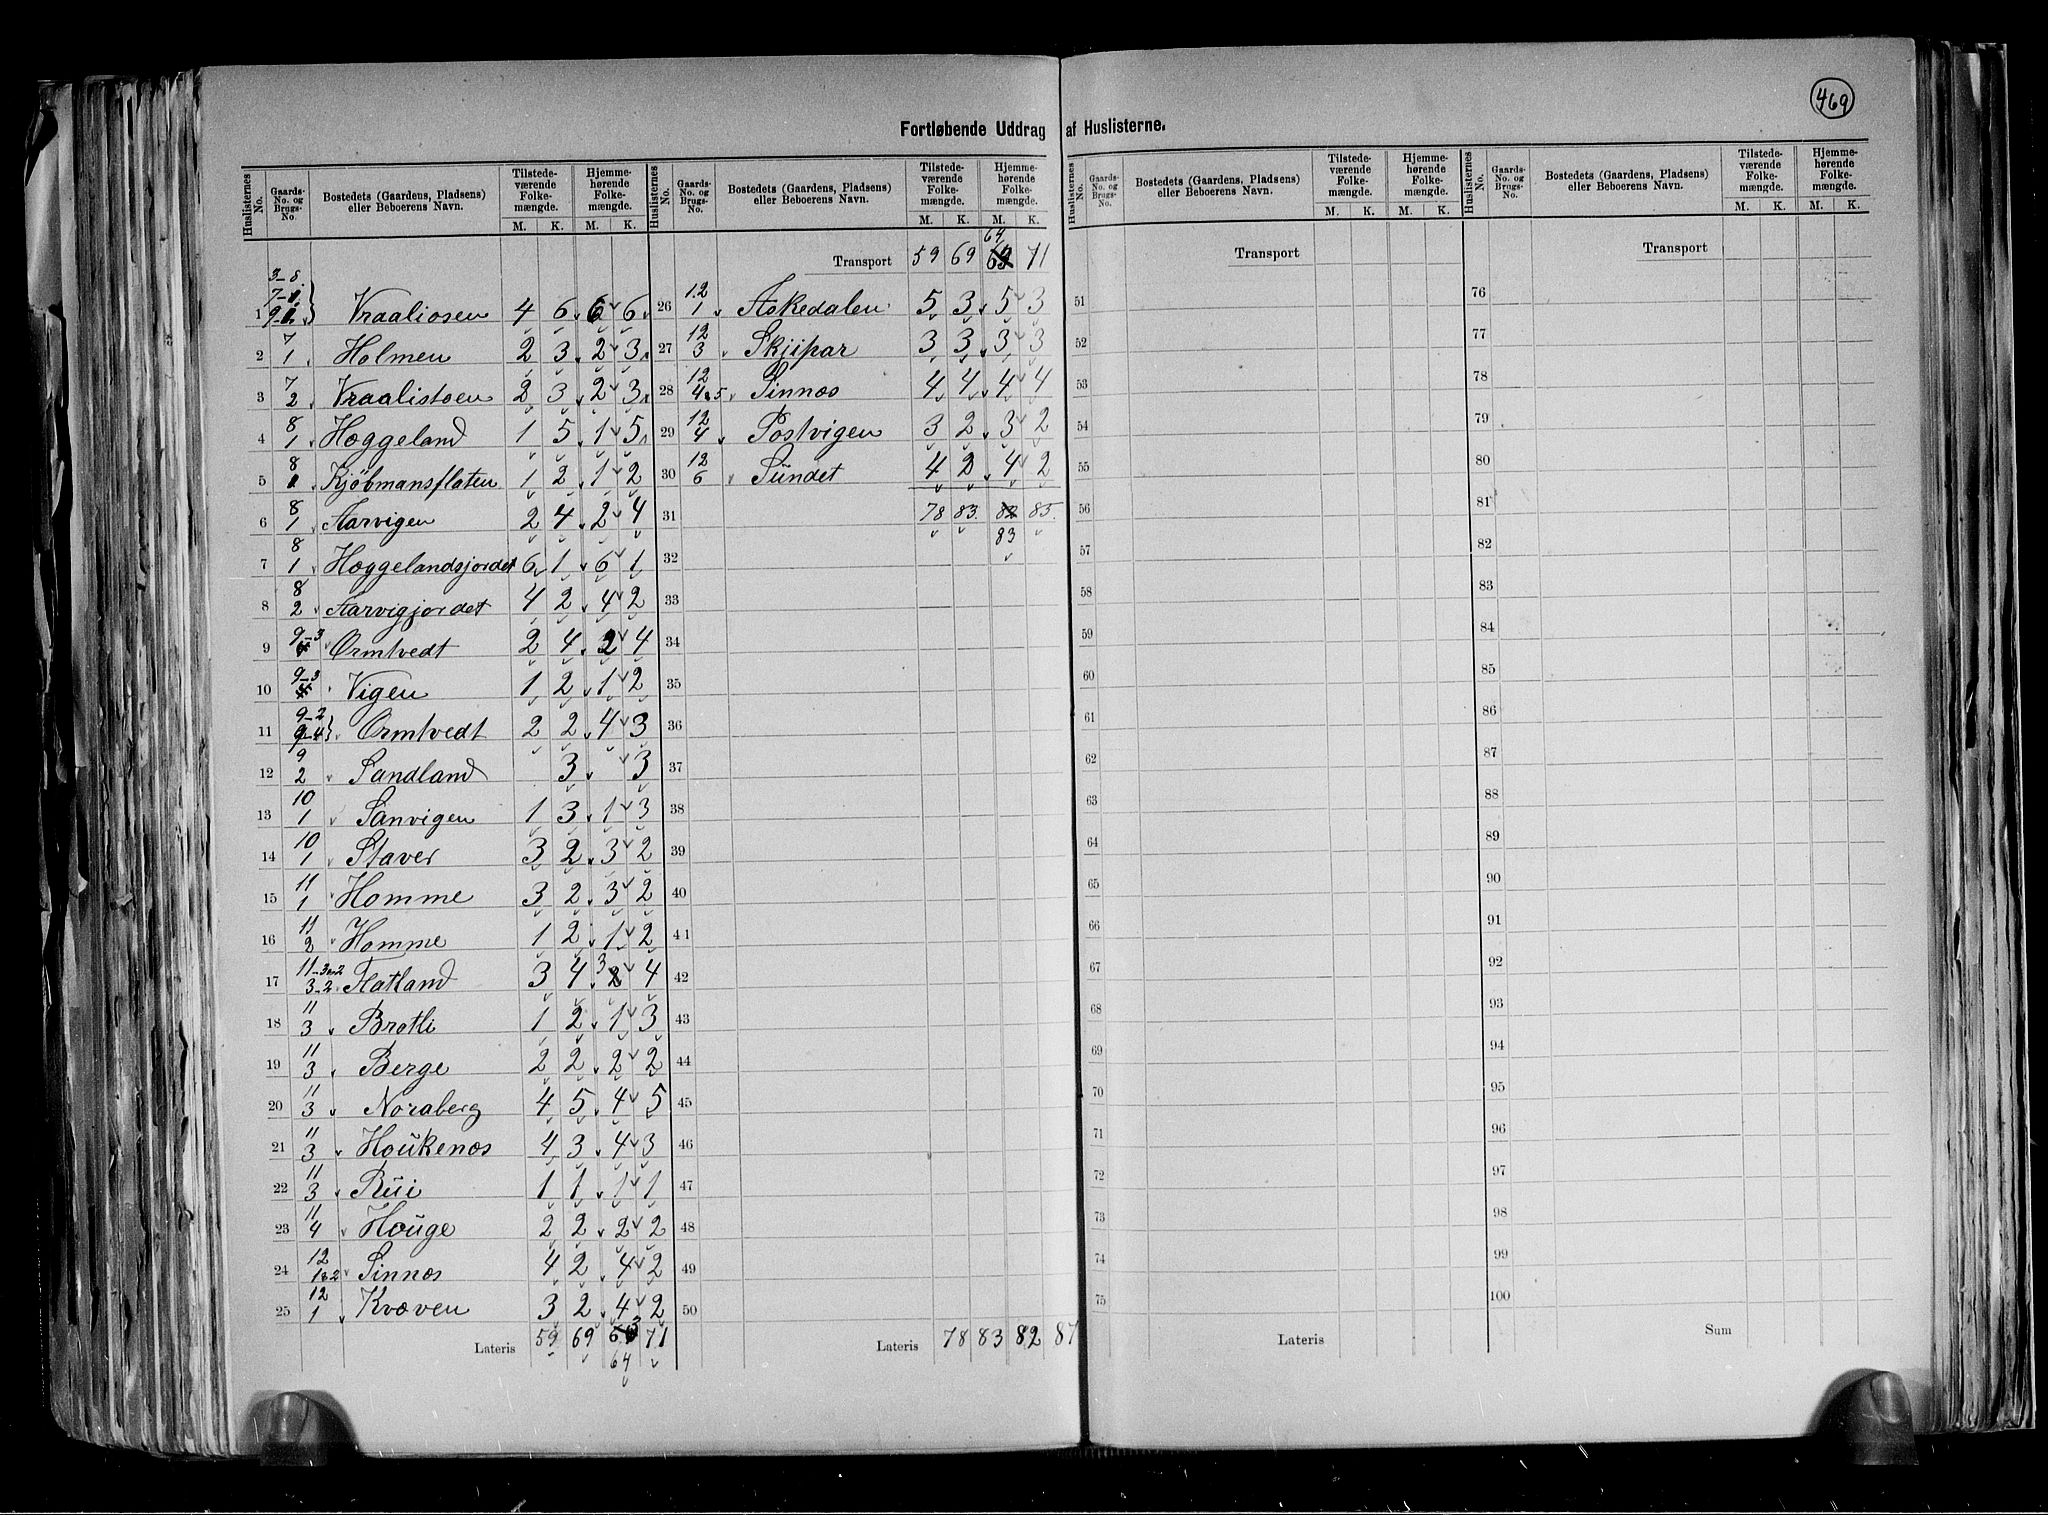 469
Fortløbende Uddrag af Huslisterne.
Huslisternes No. | Gaards-No. og Brugs-No. | Bostedets (Gaardens, Pladsens) eller Beboerens Navn. | Tilstedeværende Folkemængde. M. K. | Hjemmehørende Folkemængde. M. K.
1 3-8. 7-1. 9-1. Vraaliosen 4 6 6 6
2 7/1 Holmen 2 3 2 3
3 7/2 Vraalistoen 2 3 2 3
4 8/1 Hæggeland 1 5 1 5
5 8/1 Kjöbmansflaten 1 2 1 2
6 8/1 Aarvigen 2 4 2 4
7 8/1 Hæggelandsjordet 6 1 6 1
8 8/2 Aarvigjordet 4 2 4 2
9 9-3 Ormtvedt 2 4 2 4
10 9-3 Vigen 1 2 1 2
11 9-2 9-4 Ormtvedt 2 2 4 3
12 9/2 Sandland 3 3
13 10/1 Sanvigen 1 3 1 3
14 10/1 Staver 3 2 3 2
15 11/1 Homme 3 2 3 2
16 11/2 Homme 1 2 1 2
17 11-3 3-2 Flatland 3 4 3 4
18 11/3 Brotli 1 2 1 3
19 11/3 Berge 2 2 2 2
20 11/3 Noraberg 4 5 4 5
21 11/3 Houkenæs 4 3 4 3
22 11/3 Rui 1 1 1 1
23 11/4 Houge 2 2 2 2
24 12/1&2 Sinnæs 4 2 4 2
25 12/1 Kvæven 3 2 4 2
Lateris 59 69 63 71
64
Transport 59 69 64 71
26 12/1 Askedalen 5 3 5 3
27 12/3 Skjipar 3 3 3 3
28 12/4&5 Sinnæs 4 4 4 4
29 12/4 Postvigen 3 2 3 2
30 12/6 Sundet 4 2 4 2
31 78 83. 82 85.
83
32
33
34
35
36
37
38
39
40
41
42
43
44
45
46
47
48
49
50
Lateris 78 83 82 87
Huslisternes No. | Gaards-No. og Brugs-No. | Bostedets (Gaardens, Pladsens) eller Beboerens Navn. | Tilstedeværende Folkemængde. M. K. | Hjemmehørende Folkemængde. M. K.
Transport
51
52
53
54
55
56
57
58
59
60
61
62
63
64
65
66
67
68
69
70
71
72
73
74
75
Lateris
Transport
76
77
78
79
80
81
82
83
84
85
86
87
88
89
90
91
92
93
94
95
96
97
98
99
100
Sum